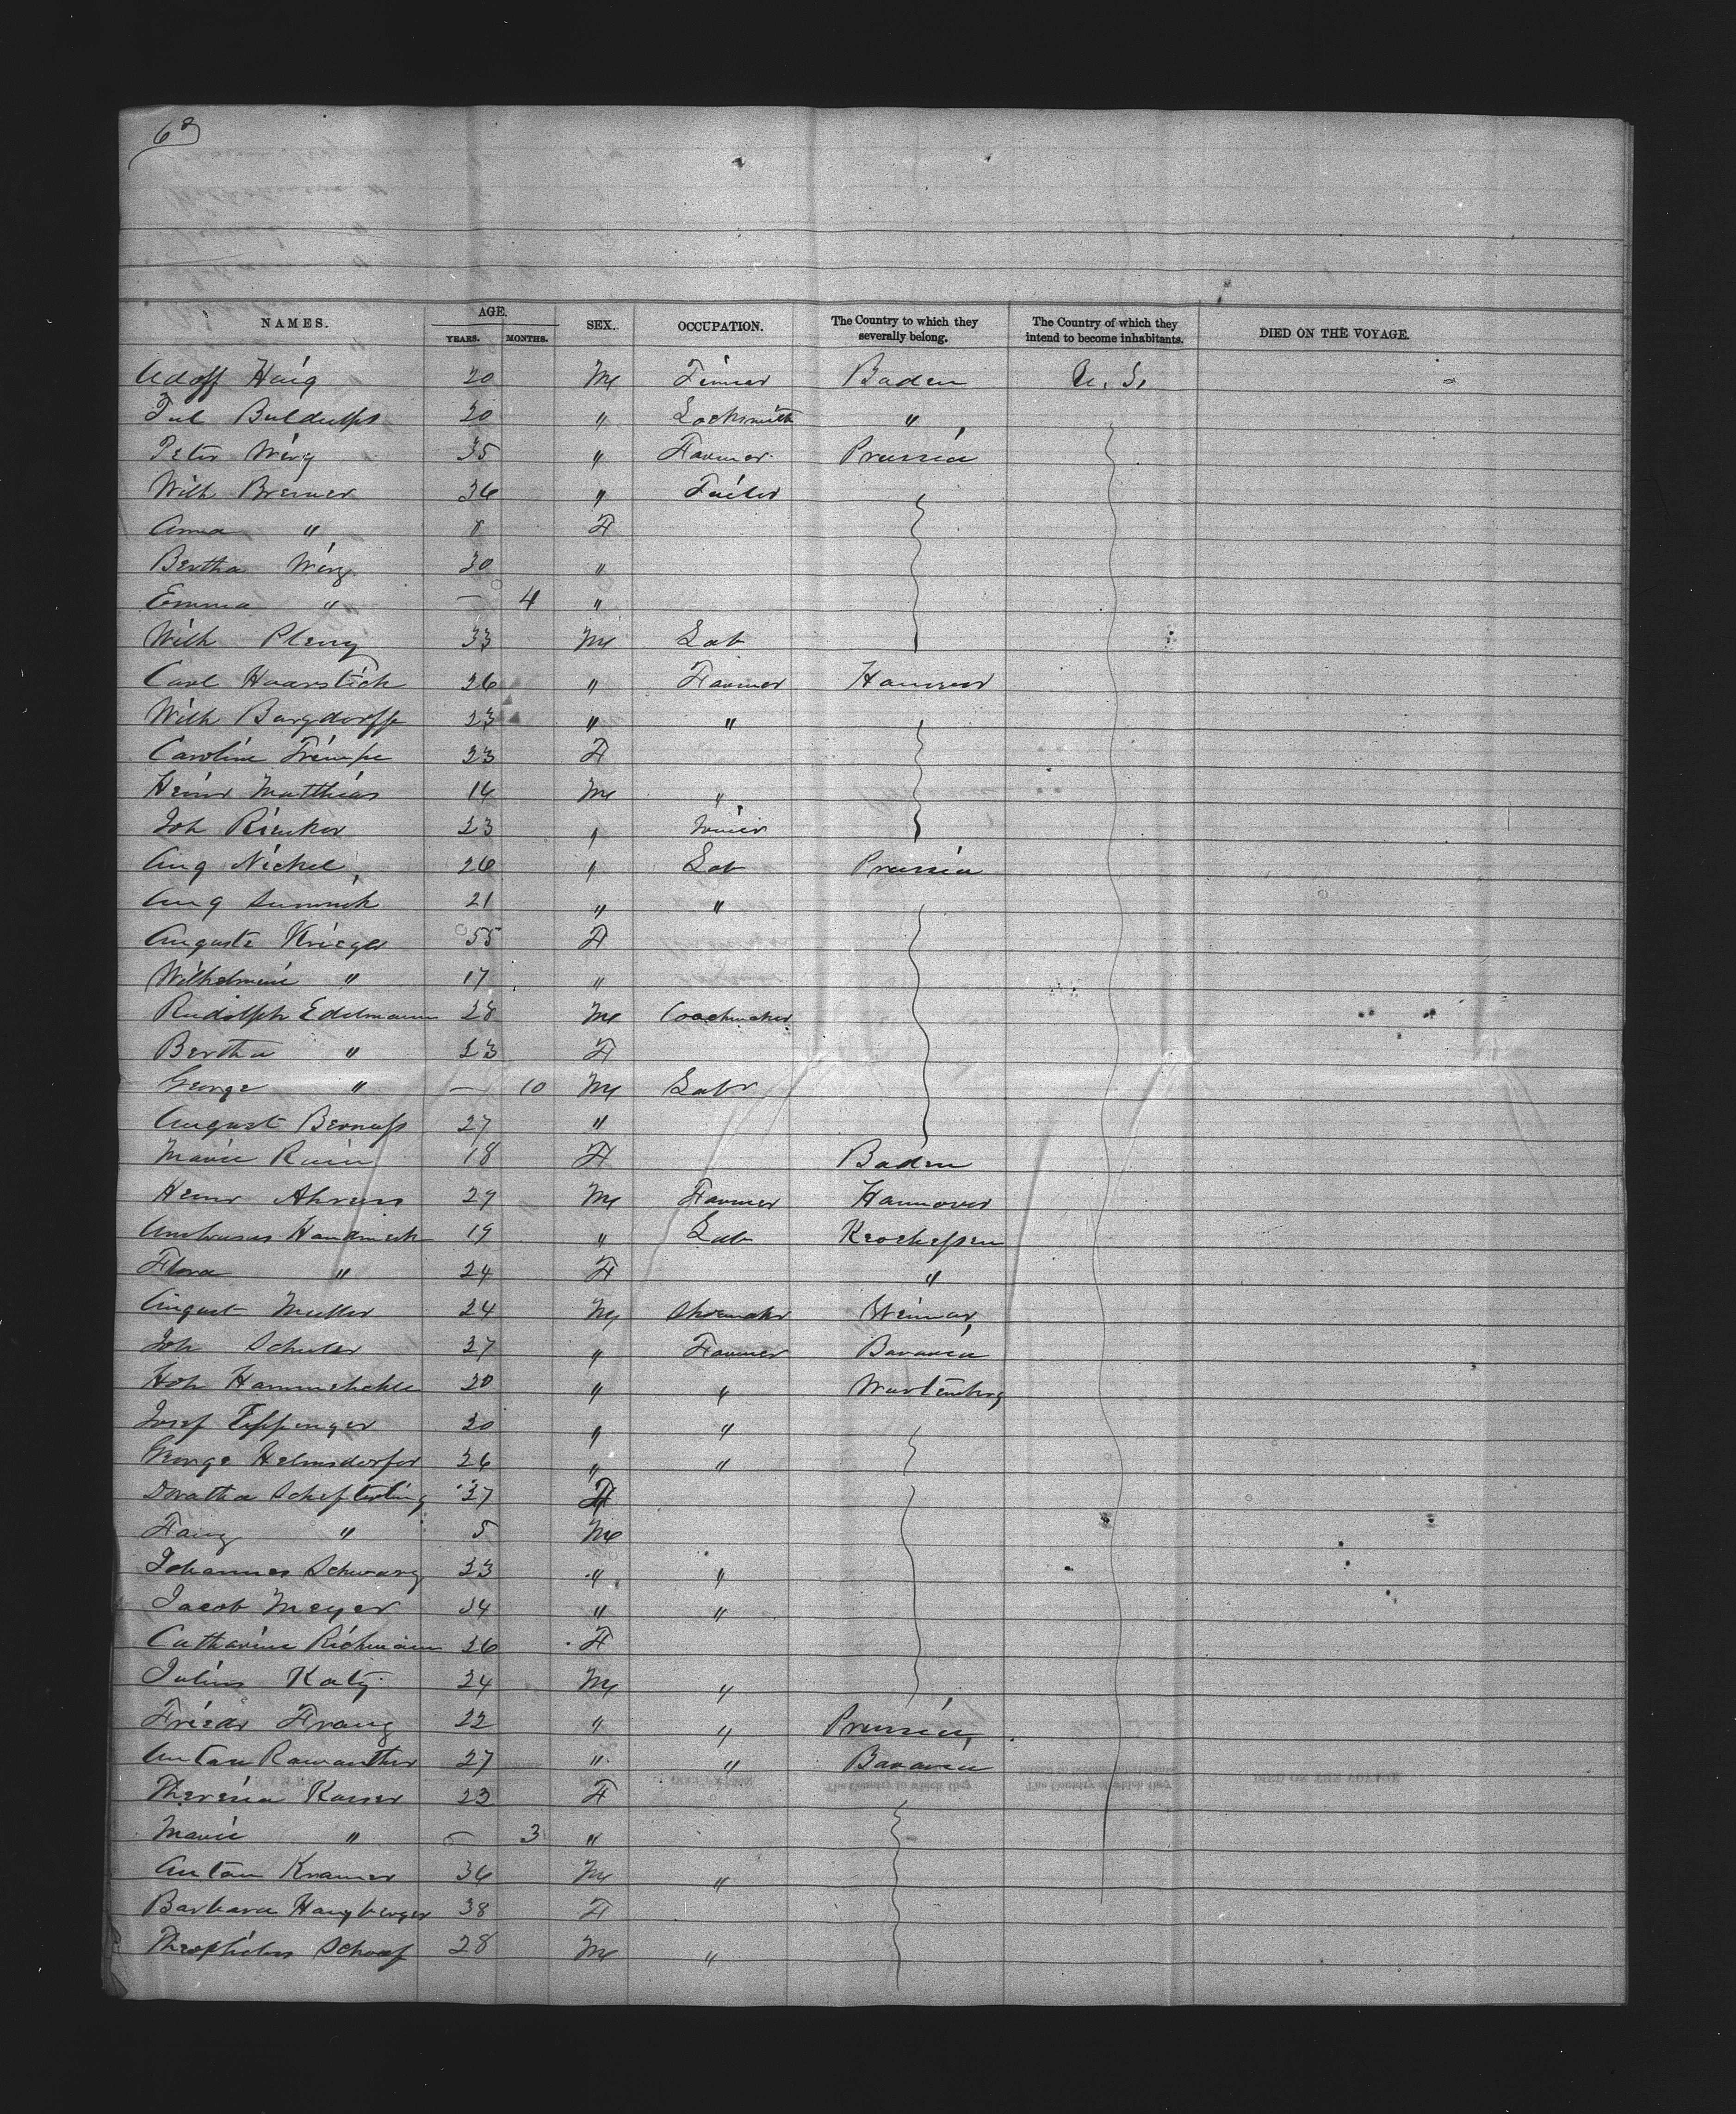 62
NAMES. AGE. YEARS. MONTHS. SEX. OCCUPATION. The Country to which they severally belong. The Country of which they intend to become inhabitants. DIED ON THE VOYAGE.
Adolf Haig 20 M Baden U. S.
20 " Locksmith "
Peter 35 " Farmer Prussia
Wilh Bremer 36 " Tailor
Anna " 8 F
Bertha 30 "
Emma " — 4 "
Wilh 33 M Lab
Carl Haarstick 26 " Farmer
Wilh Burgdorff 23 " "
Caroline 23 F
Heinr Matthias 16 M "
Joh 23 "
Aug Nickel 26 " Lab Prussia
Aug 21 " "
Auguste Krieger 55 F
Wilhelmine " 17 "
Rudolph Edelmann 28 M Coachmaker
Bertha " 23 F
George " — 10 M Labr
August 27 "
Marie 18 F Baden
Heinr Ahrens 29 M Farmer Hannover
19 " Lab
Flora " 24 F "
August Muller 24 M Weimar
Joh Schuler 37 " Farmer Bavaria
20 " " Wurtemberg
Josef Eppinger 30 " "
George Helmsdorfer 26 " "
Doratha 37 F
" 5 M
Johannes Schwarz 23 " "
Jacob Meyer 34 " "
Catharine Richmann 26 F
Julius Katz 24 M "
Friedr Franz 22 " " Prussia
Anton 27 " " Bavaria
Theresia Kaiser 23 F
Marie " — 3 "
Anton Kramer 36 M "
Barbara 38 F
Theophilus Schaaf 28 M "